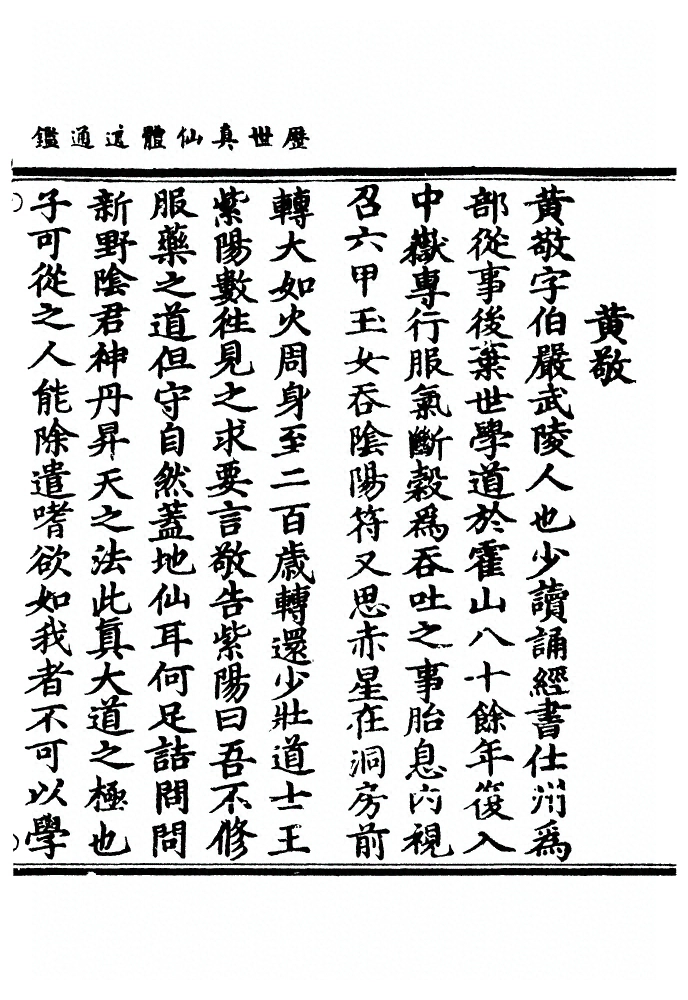 歷世真仙體道通鑑
黃敬
黃敬字伯嚴武陵人也少讀誦經書仕州為
部從事後棄世學道於霍山八十餘年復入
中嶽專行服氣斷穀為吞吐之事胎息內視
召六甲玉女吞陰陽符又思赤星在洞房前
轉大如火周身至二百歲轉還少壯道士王
紫陽數往見之求要言敬告紫陽曰吾不修
服藥之道但守自然蓋地仙耳何足詰問問
新野陰君神丹昇天之法此真大道之極也
子可從之人能除遣嗜欲如我者不可以學